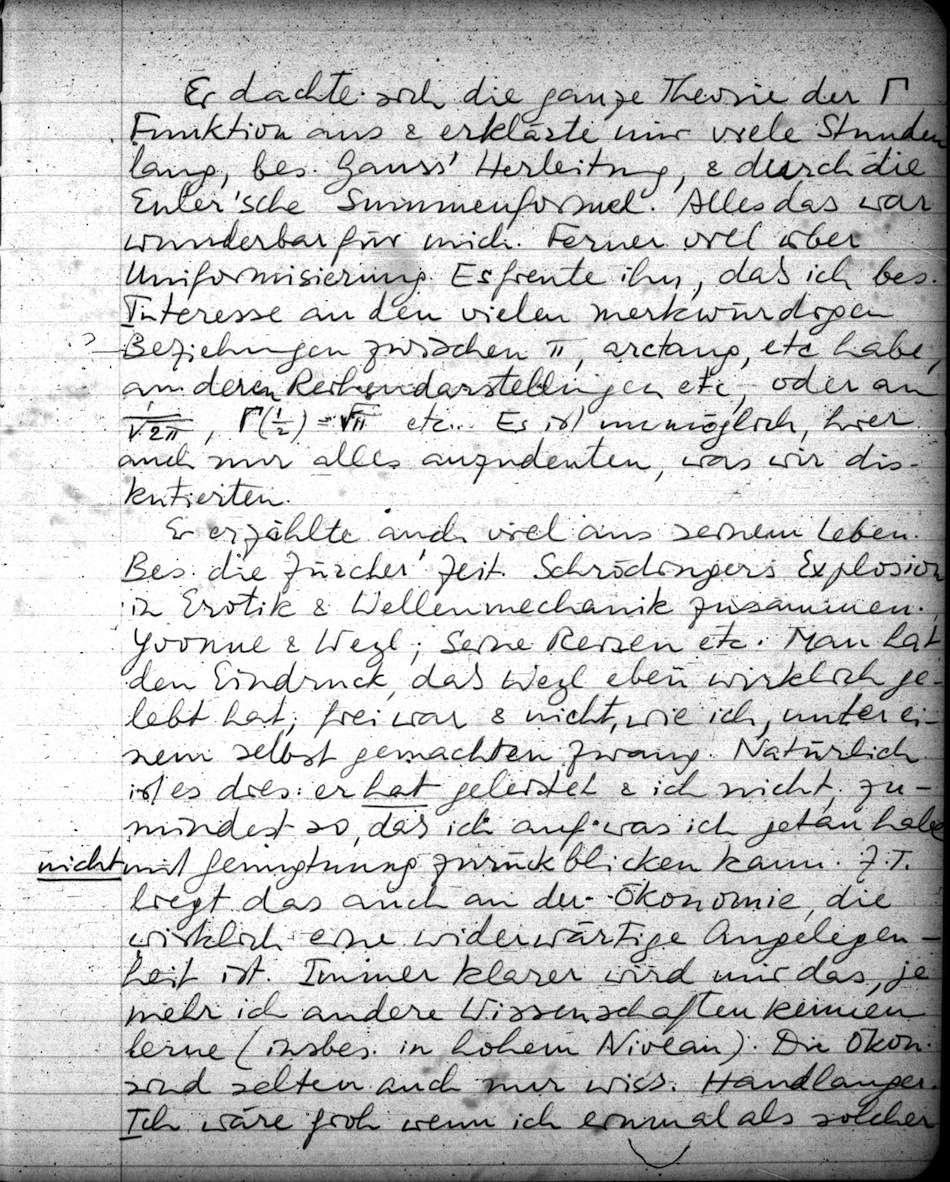 Er dachte sich die ganze Theorie der Γ
Funktion aus & erklärte mir viele Stunden
lang, bes. Gauss' Herleitung, & durch die
Euler'sche Summenformel. Alles das war
wunderbar für mich. Ferner viel über
Uniformisierung. Es freute ihn, das ich bes.
Interesse an den vielen merkwürdigen
? Beziehungen zwischen π, arctang, etc habe,
an deren Reihendarstellungen etc, oder an
1/√2π, Γ(1/2) = √π etc.. Es ist unmöglich, hier
auch nur alles anzudeuten, was wir dis-
kutierten.
Er erzählte auch viel aus seinem Leben.
Bes. die Zürcher Zeit. Schrödingers Explosion
in Erotik & Wellenmechanik zusammen.
Yvonne & Weyl; Seine Reisen etc. Man hat
den Eindruck, das Weyl eben wirklich ge-
lebt hat, frei war & nicht, wie ich, unter ei-
nem selbst gemachten Zwang. Natürlich
ist es dies: er hat geleistet & ich nicht, zu-
mindest so, das ich auf was ich getan habe
nicht mit Genugtuung zurückblicken kann. Z.T.
liegt das auch an der Ökonomie, die
wirklich eine widerwärtige Angelegen-
heit ist. Immer klarer wird mir das, je
mehr ich andere Wissenschaften kennen
lerne (insbes. in hohem Niveau). Die Ökon.
sind selten auch nur wiss. Handlanger.
Ich wäre froh wenn ich einmal als solcher